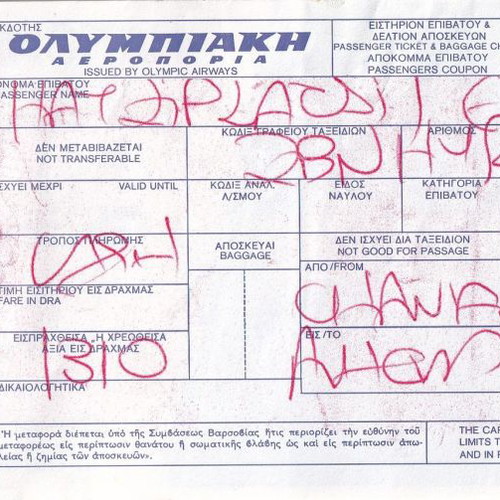 ΕΚΔΟΤΗΣ
ΟΛΥΜΠΙΑΚΗ
ΑΕΡΟΠΟΡΙΑ
ISSUED BY OLYMPIC AIRWAYS
ΕΙΣΤΗΡΙΟΝ ΕΠΙΒΑΤΟΥ &
ΔΕΛΤΙΟΝ ΑΠΟΣΚΕΥΩΝ
PASSENGER TICKET & BAGGAGE CH
ΑΠΟΚΟΜΜΑ ΕΠΙΒΑΤΟΥ
PASSENGERS COUPON
ΟΝΟΜΑ ΕΠΙΒΑΤΟΥ
PASSENGER NAME
ΔΕΝ ΜΕΤΑΒΙΒΑΖΕΤΑΙ
NOT TRANSFERABLE
ΚΩΔΙΞ ΓΡΑΦΕΙΟΥ ΤΑΞΕΙΔΙΩΝ
ΑΡΙΘΜΟΣ
ΙΣΧΥΕΙ ΜΕΧΡΙ VALID UNTIL
ΚΩΔΙΞ ΑΝΑΛ.
Λ/ΣΜΟΥ
ΕΙΔΟΣ
ΝΑΥΛΟΥ
ΚΑΤΗΓΟΡΙΑ
ΕΠΙΒΑΤΟΥ
ΤΡΟΠΟΣ ΠΛΗΡΩΜΗΣ
CASH
ΑΠΟΣΚΕΥΑΙ
BAGGAGE
ΔΕΝ ΙΣΧΥΕΙ ΔΙΑ ΤΑΞΕΙΔΙΟΝ
NOT GOOD FOR PASSAGE
ΑΠΟ/FROM
CHANIA
ΤΙΜΗ ΕΙΣΙΤΗΡΙΟΥ ΕΙΣ ΔΡΑΧΜΑΣ
FARE IN DRA
ΕΙΣΠΡΑΧΘΕΙΣΑ "Η ΧΡΕΩΘΕΙΣΑ
ΑΞΙΑ ΕΙΣ ΔΡΑΧΜΑΣ
1310
ΕΙΣ/TO
ΔΙΚΑΙΟΛΟΓΗΤΙΚΑ
Ἡ μεταφορά διέπεται ὑπό τῆς Συμβάσεως Βαρσοβίας ἥτις περιορίζει τήν εὐθύνην τοῦ
μεταφορέως εἰς περίπτωσιν θανάτου ἤ σωματικῆς βλάβης ὡς καί εἰς περίπτωσιν ἀπω-
λείας ἤ ζημίας τῶν ἀποσκευῶν.
THE CAR
LIMITS T
AND IN R